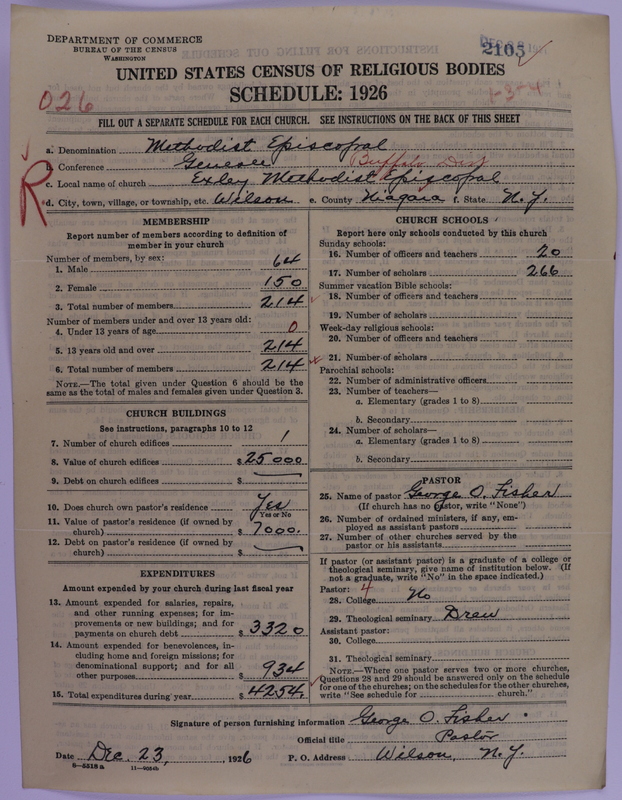 DEPARTMENT OF COMMERCE
BUREAU OF THE CENSUS
WASHINGTON
2105
UNITED STATES CENSUS OF RELIGIOUS BODIES
SCHEDULE: 1926
026
1-3-4
FILL OUT A SEPARATE SCHEDULE FOR EACH CHURCH. SEE INSTRUCTIONS ON THE BACK OF THIS SHEET
R
a. Denomination Methodist Episcopal
b. Conference Genesee Buffalo Dist
c. Local name of church Exley Methodist Episcopal
d. City, town, village, or township, etc. Wilson e. County Niagara f. State N.Y.
MEMBERSHIP
Report number of members according to definition of
member in your church
Number of members, by sex:
1. Male 64
2. Female 150
3. Total number of members 214
Number of members under and over 13 years old:
4. Under 13 years of age 0
5. 13 years old and over 214
6. Total number of members 214
NOTE.—The total given under Question 6 should be the
same as the total of males and females given under Question 3.
CHURCH BUILDINGS
See instructions, paragraphs 10 to 12
7. Number of church edifices 1
8. Value of church edifices $ 25000
9. Debt on church edifices $
10. Does church own pastor's residence Yes
Yes or No
11. Value of pastor's residence (if owned by
church) $ 7000.
12. Debt on pastor's residence (if owned by
church) $
EXPENDITURES
Amount expended by your church during last fiscal year
13. Amount expended for salaries, repairs,
and other running expenses; for im-
provements or new buildings; and for
payments on church debt $ 3320
14. Amount expended for benevolences, in-
cluding home and foreign missions; for
denominational support; and for all
other purposes $ 934
15. Total expenditures during year $ 4254.
CHURCH SCHOOLS
Report here only schools conducted by this church
Sunday schools:
16. Number of officers and teachers 20
17. Number of scholars 266
Summer vacation Bible schools:
18. Number of officers and teachers
19. Number of scholars
Week-day religious schools:
20. Number of officers and teachers
21. Number of scholars
Parochial schools:
22. Number of administrative officers
23. Number of teachers—
a. Elementary (grades 1 to 8)
b. Secondary
24. Number of scholars—
a. Elementary (grades 1 to 8)
b. Secondary
PASTOR
25. Name of pastor George O. Fisher
(If church has no pastor, write "None")
26. Number of ordained ministers, if any, em-
ployed as assistant pastors
27. Number of other churches served by the
pastor or his assistants
If pastor (or assistant pastor) is a graduate of a college or
theological seminary, give name of institution below. (If
not a graduate, write "No" in the space indicated.)
Pastor: 4
28. College No
29. Theological seminary Drew
Assistant pastor:
30. College
31. Theological seminary
NOTE.—Where one pastor serves two or more churches,
Questions 28 and 29 should be answered only on the schedule
for one of the churches; on the schedules for the other churches,
write "See schedule for church."
Signature of person furnishing information George O. Fisher
Official title Pastor
Date Dec. 23, 1926 P. O. Address Wilson, N.Y.
8—5518a 11—9034b